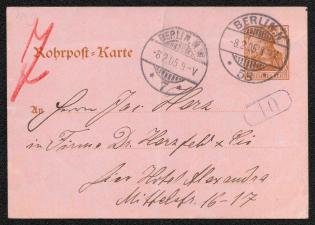 BERLIN.N.W
-8.2.05.9-V
BERLIN.W
-8.2.05
Rohrpost-Karte
An Herrn Jac Herz
in Firma Dr. Herzfeld & Cie
10
hier Hotel Alexandra
Mittelstr. 16-17